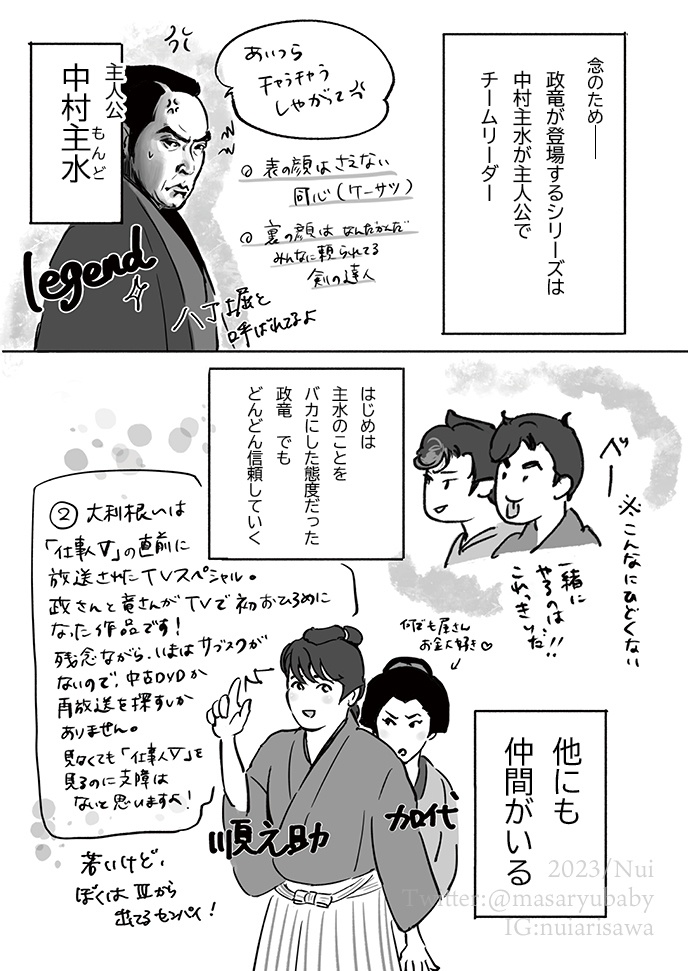 念のため――
政竜が登場するシリーズは
中村主水が主人公で
チームリーダー
あいつら
キャラキャラ
しやがって
主人公
中村主水
もんど
legend
○表の顔はさえない
同心(ケーサツ)
○裏の顔はなんだかんだ
みんなに頼られてる
剣の達人
八丁堀と
呼ばれてるよ
べー
※こんなにひどくない
一緒に
やるのは
これっきりだ!!
はじめは
主水のことを
バカにした態度だった
政竜 でも
どんどん信頼していく
②大利根〜は
「仕事人Ⅴ」の直前に
放送されたTVスペシャル。
政さんと竜さんがTVで初おひろめに
なった作品です!
残念ながら、いまはサブスクが
ないので、中古DVDか
再放送を探すしか
ありません。
見なくても「仕事人Ⅴ」を
見るのに支障は
ないと思いますよ!
何でも屋さん
お金大好き♡
他にも
仲間がいる
順之助
加代
若いけど、
ぼくはⅢから
出てるセンパイ!
2023/Nui
Twitter:@masaryubaby
IG:nuiarisawa